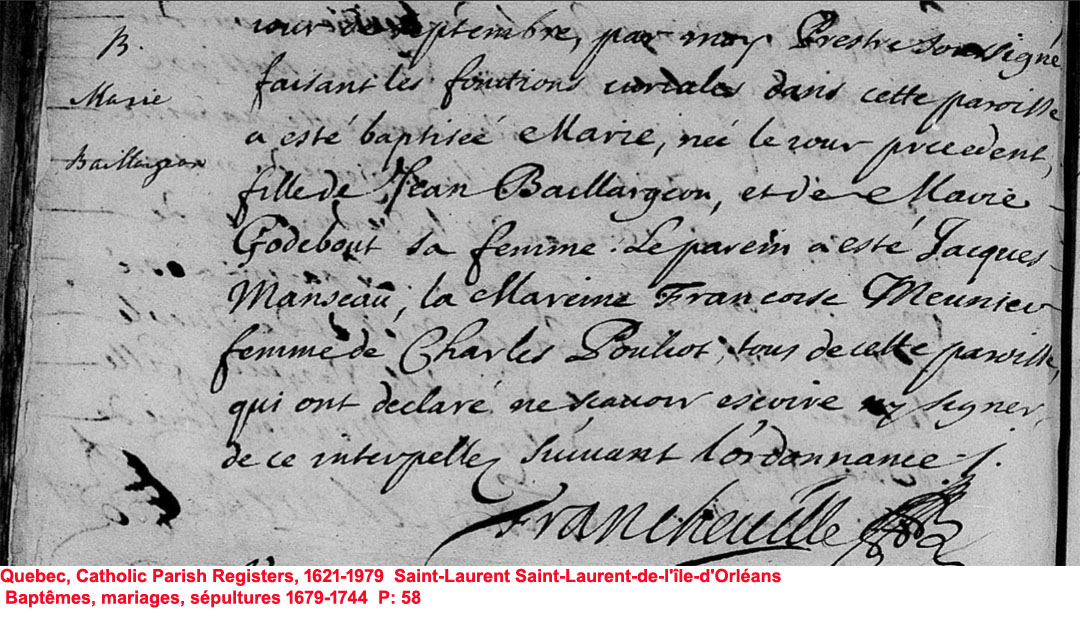 B.
Marie
Baillargeon
iour de septembre, par moy Prestre Soussigné
faisant les fonctions curiales dans cette paroisse
a esté baptiseé Marie, neé le iour precedent,
fille de Jean Baillargeon, et de Marie
Godebout sa femme. Le parein a esté Jacques
Manseau, la Mareine Francoise Meunier
femme de Charles Pouliot, tous de cette paroisse,
qui ont declaré ne scauoir escrire ny signer,
de ce interpellez suiuant l'ordonnance /.
Francheuille
Quebec, Catholic Parish Registers, 1621-1979 Saint-Laurent Saint-Laurent-de-l'île-d'Orléans
Baptêmes, mariages, sépultures 1679-1744 P: 58